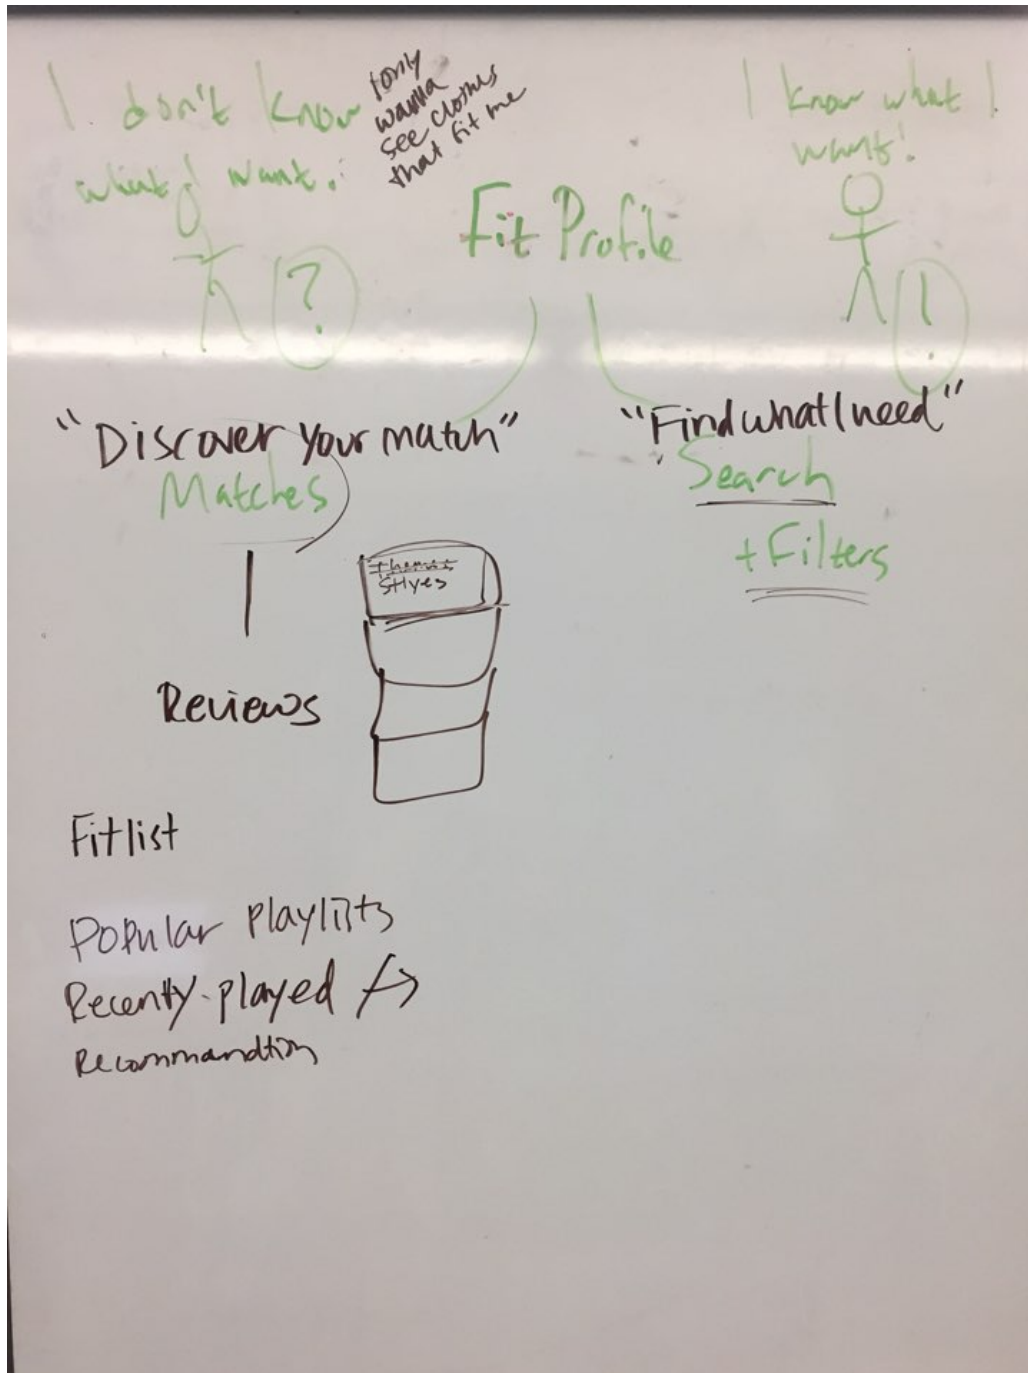 I don't know
what I want.
I only
wanna
see clothes
that fit me
I know what I
want!
Fit Profile
?
!
"Discover your match"
Matches
"Find what I need"
Search
+ Filters
themes
Stlyes
Reviews
Fitlist
Popular playlists
Recently-played
Recommandtion